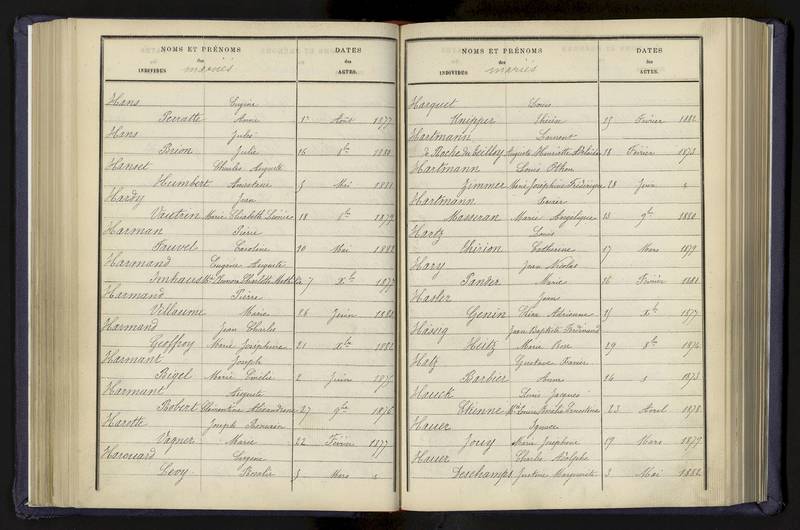 NOMS ET PRÉNOMS
des
INDIVIDUS mariés
DATES
des
ACTES.
Hans Eugène
Perratte Annie 1r Août 1877
Hans Jules
Brion Julie 15 8bre 1880
Hanset Charles Auguste
Humbert Anastasie 5 Mai 1881
Hardy Jean
Vautrin Marie Elisabeth Léonie 18 8bre 1879
Harman Pierre
Fauvel Caroline 20 Mai 1882
Harmand Eugène Auguste
Imhaus Charlotte 7 Xbre 1877
Harmand Pierre
Villaume Marie 26 Juin 1882
Harmand Jean Charles
Geoffroy Marie Joséphine 21 Xbre 1882
Harmant Joseph
Bigel Marie Emélie 2 Juin 187
Harmant Auguste
Robert Clémentine Alexandrine 27 9bre 1876
Harotte Joseph Romain
Vagner Marie 22 Février 1877
Harouard Eugène
Levy Rosalie 5 Mars
NOMS ET PRÉNOMS
des
INDIVIDUS mariés
DATES
des
ACTES.
Harquet Louis
Knipper Thérèse 15 Février 1882
Hartmann Laurent
de Roche du Teilloy Auguste Henriette Adélaïde 18 Février 1873
Hartmann Louis Othon
Zimmer Marie Joséphine Frédérique 28 Juin
Hartmann Xavier
Masseran Marie Angélique 13 9bre 1880
Hartz Louis
Thirion Catherine 17 Mars 1879
Hary Jean Nicolas
Pander Marie 16 Février 1881
Hasler Jean
Genin Claire Adrienne 25 Xbre 1877
Hasny Jean Baptiste Ferdinand
Heitz Marie Rose 29 8bre 1874
Hatz Gustave Xavier
Barbier Anne 14 1873
Hauck Louis Jacques
Etienne Louise Rosalie Ernestine 23 Avril 1878
Hauer Ignace
Jouy Marie Joséphine 19 Mars 1879
Hauer Charles Adolphe
Deschamps Justine Marguerite 3 Mai 1882